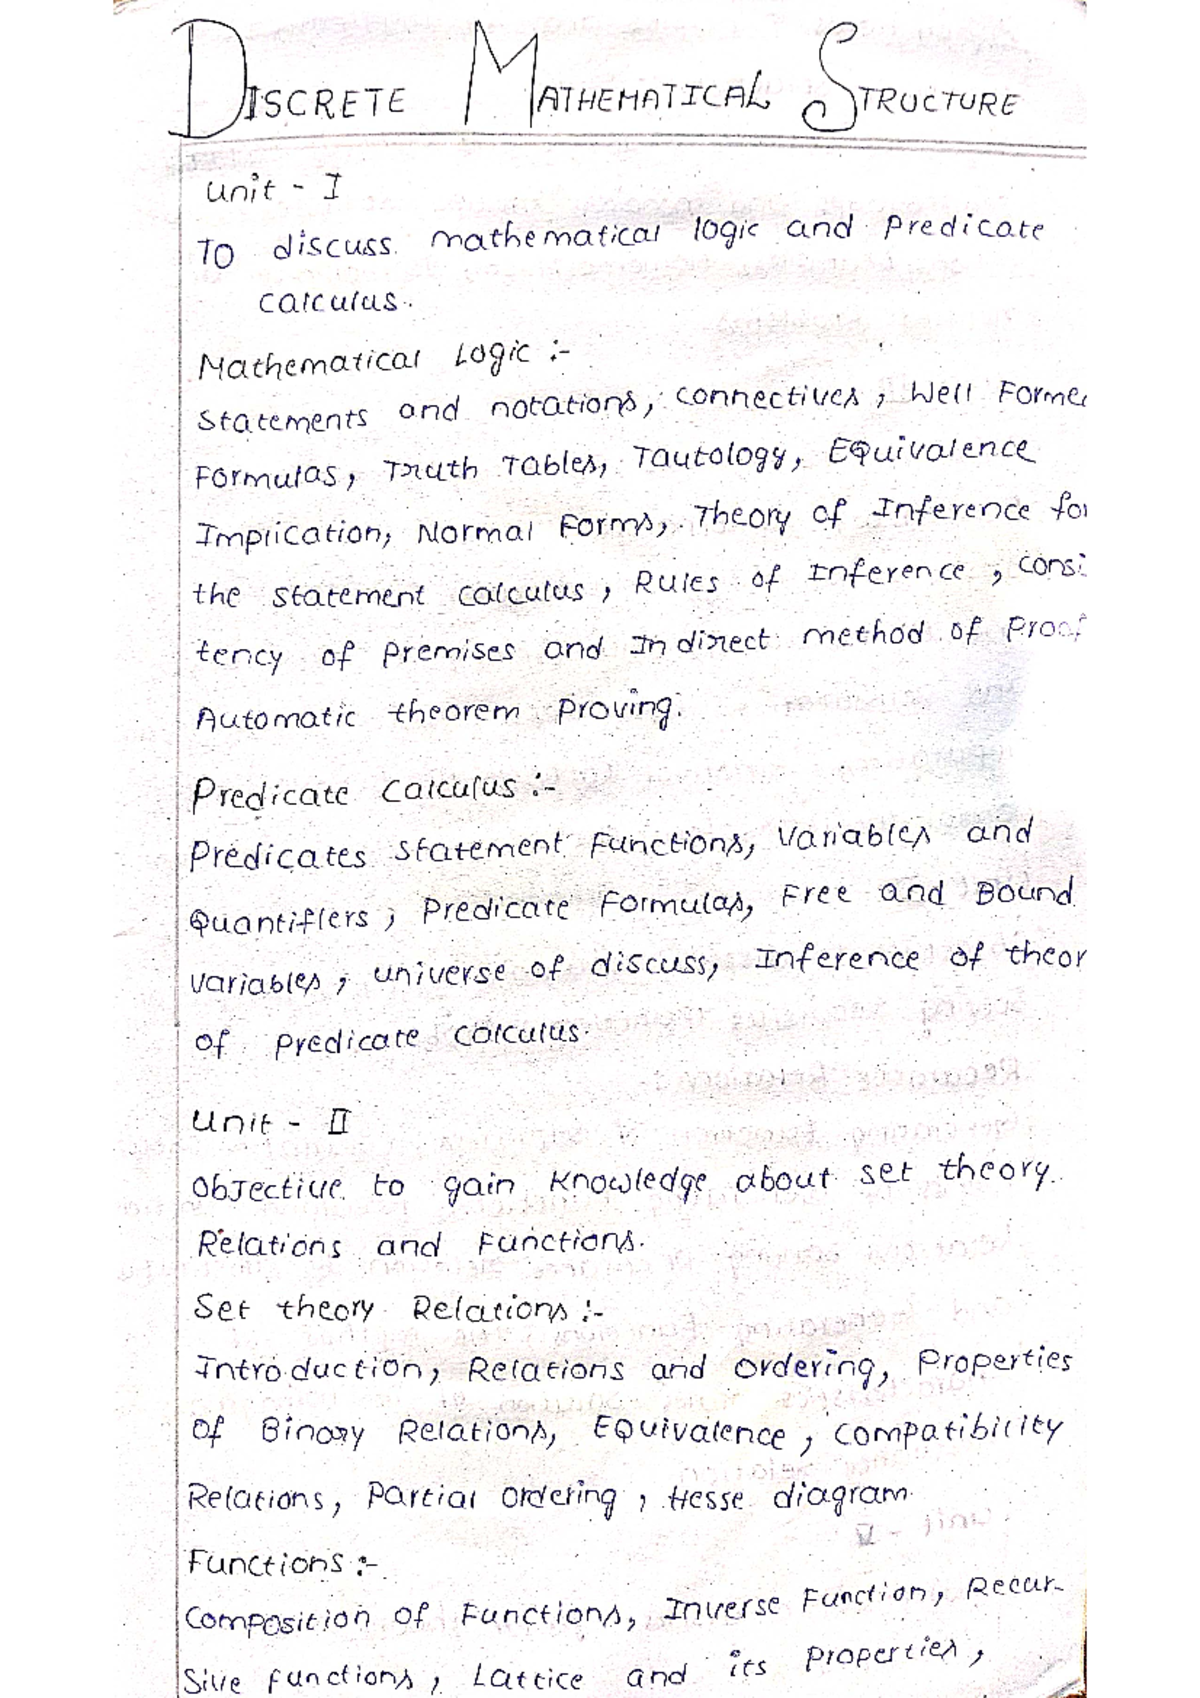 DISCRETE MATHEMATICAL STRUCTURE
Unit - I
To discuss mathematical logic and Predicate
calculus.
Mathematical Logic :-
Statements and notations, connectives, Well Forme
Formulas, Truth Tables, Tautology, Equivalence
Implication, Normal Forms, Theory of Inference for
the statement calculus, Rules of Inference, consi
tency of premises and Indirect method of Proof
Automatic theorem Proving.
Predicate Calculus :-
Predicates Statement Functions, Variables and
Quantifiers, Predicate Formulas, Free and Bound
variables, universe of discuss, Inference of theor
of predicate calculus.
Unit - II
Objective to gain Knowledge about set theory.
Relations and Functions.
Set theory Relations :-
Introduction, Relations and ordering, Properties
of Binary Relations, Equivalence, compatibility
Relations, Partial ordering, Hesse diagram.
Functions :-
Composition of Functions, Inverse Function, Recur-
sive functions, Lattice and its Properties,